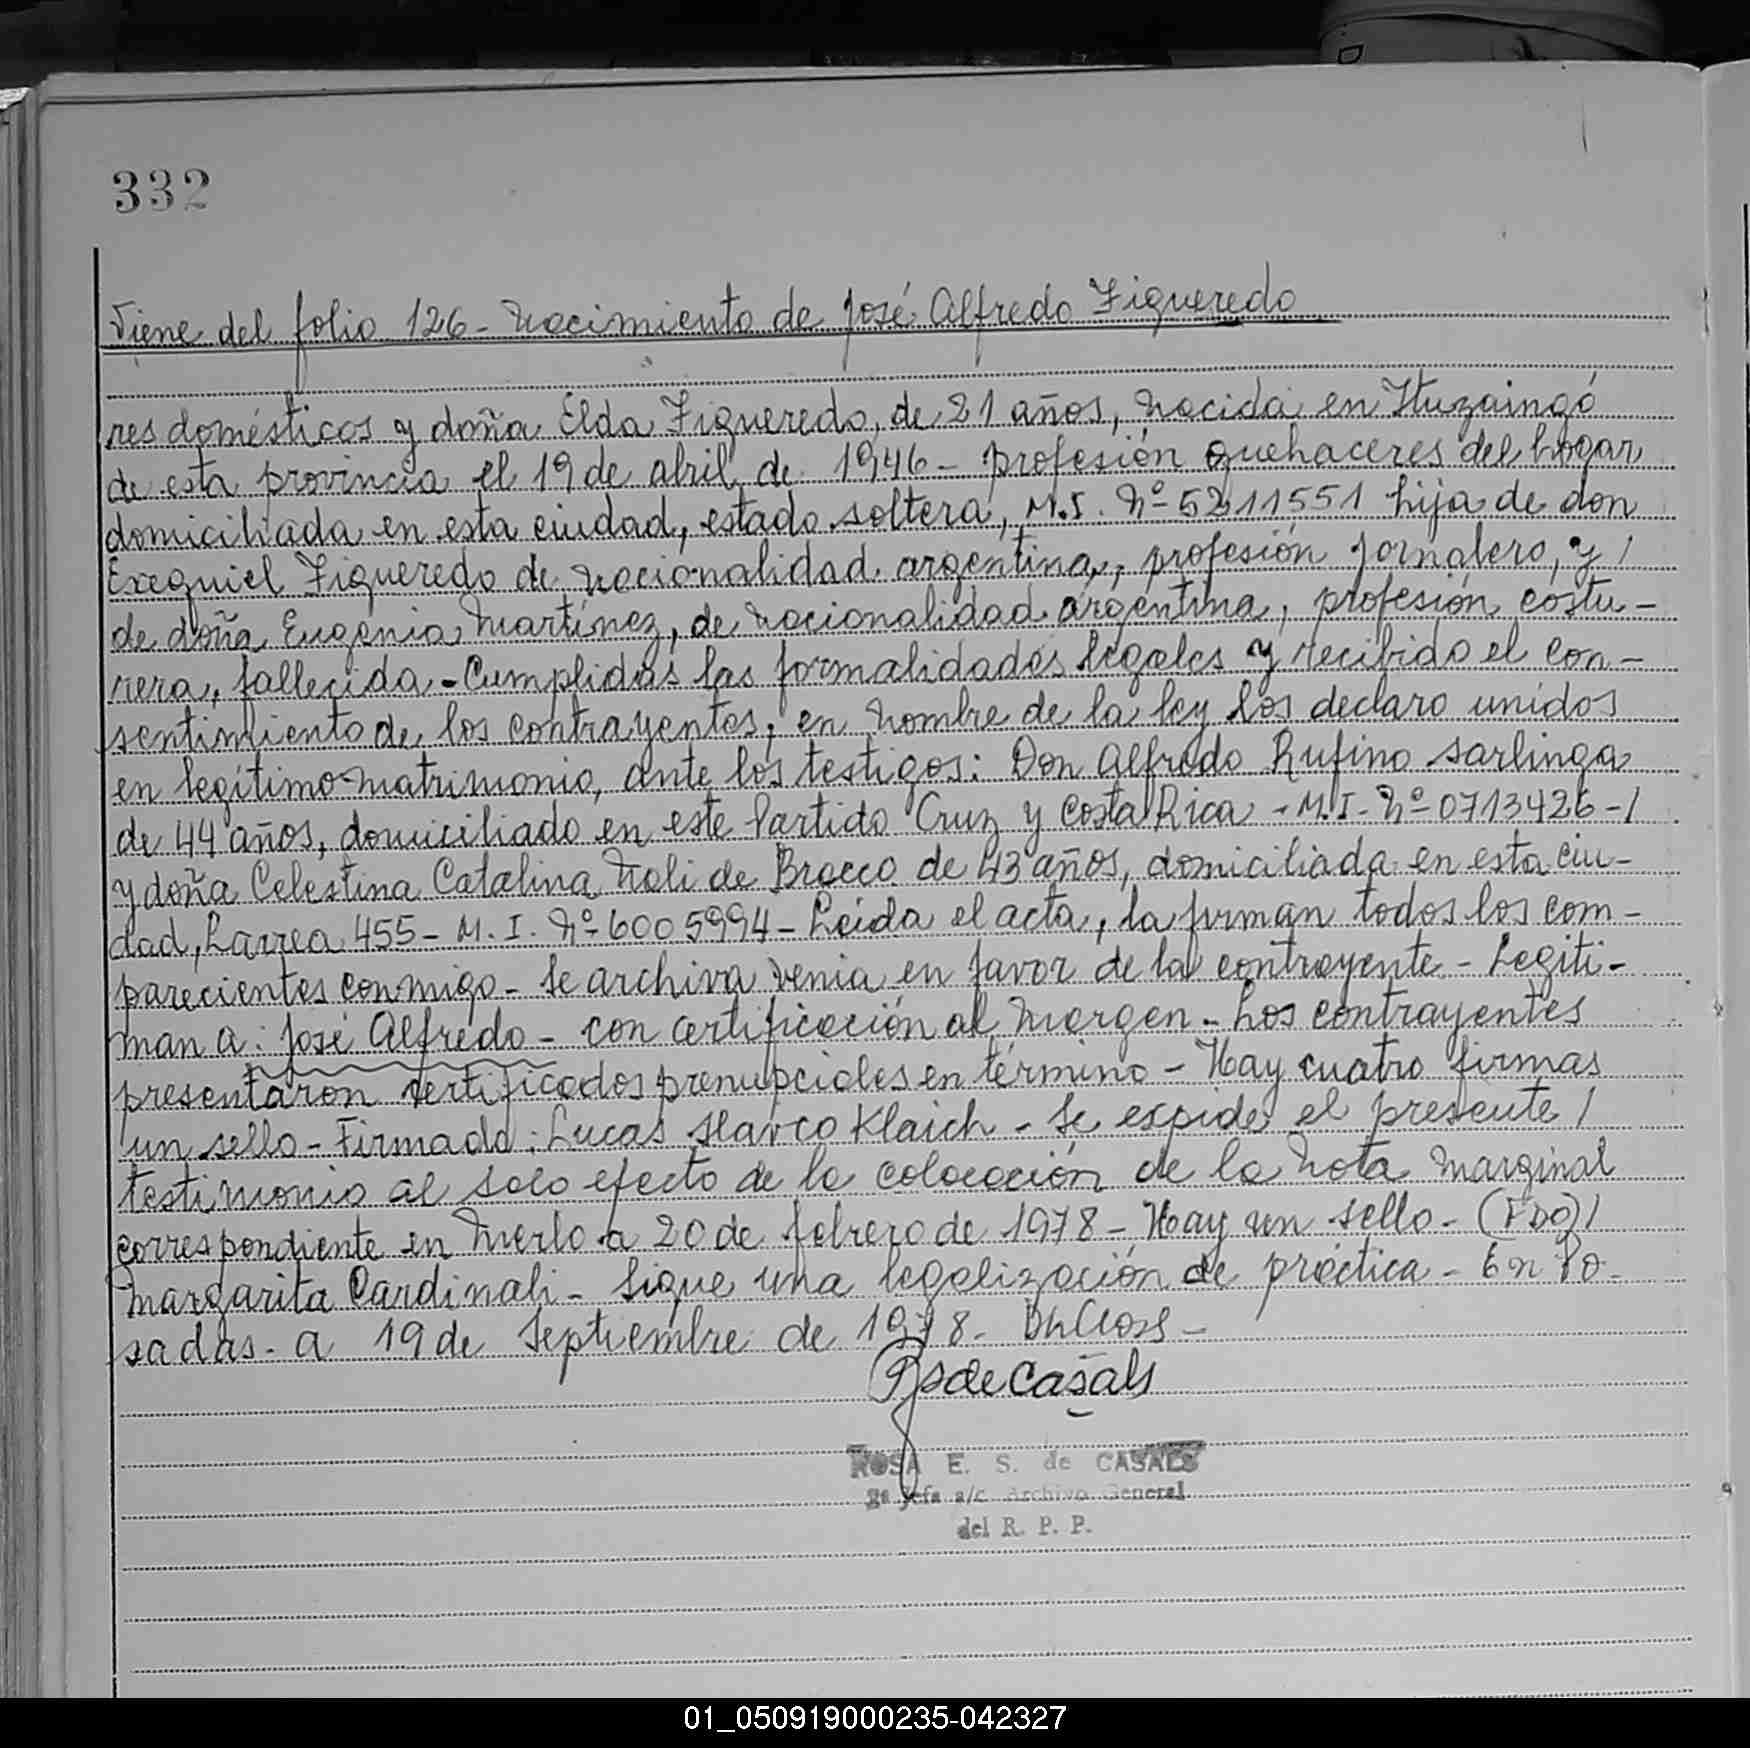 332
Viene del folio 126 - Nacimiento de José Alfredo Figueredo
res domésticos y doña Elda Figueredo, de 21 años, nacida en Ituzaingó
de esta provincia el 19 de abril de 1946 - profesión quehaceres del hogar
domiciliada en esta ciudad, estado soltera, M.I. Nº 5211551 hija de don
Exequiel Figueredo de nacionalidad argentina, profesión jornalero, y /
de doña Eugenia Martínez, de nacionalidad argentina, profesión costu-
rera, fallecida - Cumplidas las formalidades legales y recibido el con-
sentimiento de los contrayentes, en nombre de la ley los declaro unidos
en legítimo matrimonio, ante los testigos: Don Alfredo Rufino Sarlinga
de 44 años, domiciliado en este Partido Cruz y Costa Rica - M.I. Nº 0713426 - /
y doña Celestina Catalina Noli de Brocco de 43 años, domiciliada en esta ciu-
dad, Larrea 455 - M.I. Nº 6005994 - Leída el acta, la firman todos los com-
parecientes conmigo - Se archiva venia en favor de la contrayente - Legiti-
man a: José Alfredo - con certificación al margen - Los contrayentes
presentaron certificados prenupciales en término - Hay cuatro firmas
un sello - Firmado: Lucas Marco Klaich - Se expide el presente /
testimonio al solo efecto de la colocación de la nota marginal
correspondiente en Merlo a 20 de febrero de 1978 - Hay un sello - (FDO) /
Margarita Cardinali - Sigue una legalización de práctica - En Po-
sadas - a 19 de Septiembre de 1978 -
RSdeCasals
ROSA E. S. de CASALS
2ª jefa a/c. Archivo General
del R. P. P.
01_050919000235-042327